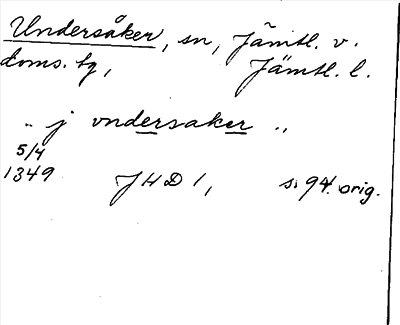 Undersåker, sn, Jämtl. v.
doms. tg, Jämtl. l.
.. j vndersaker ..
5/4
1349 JHD 1, s. 94. orig.